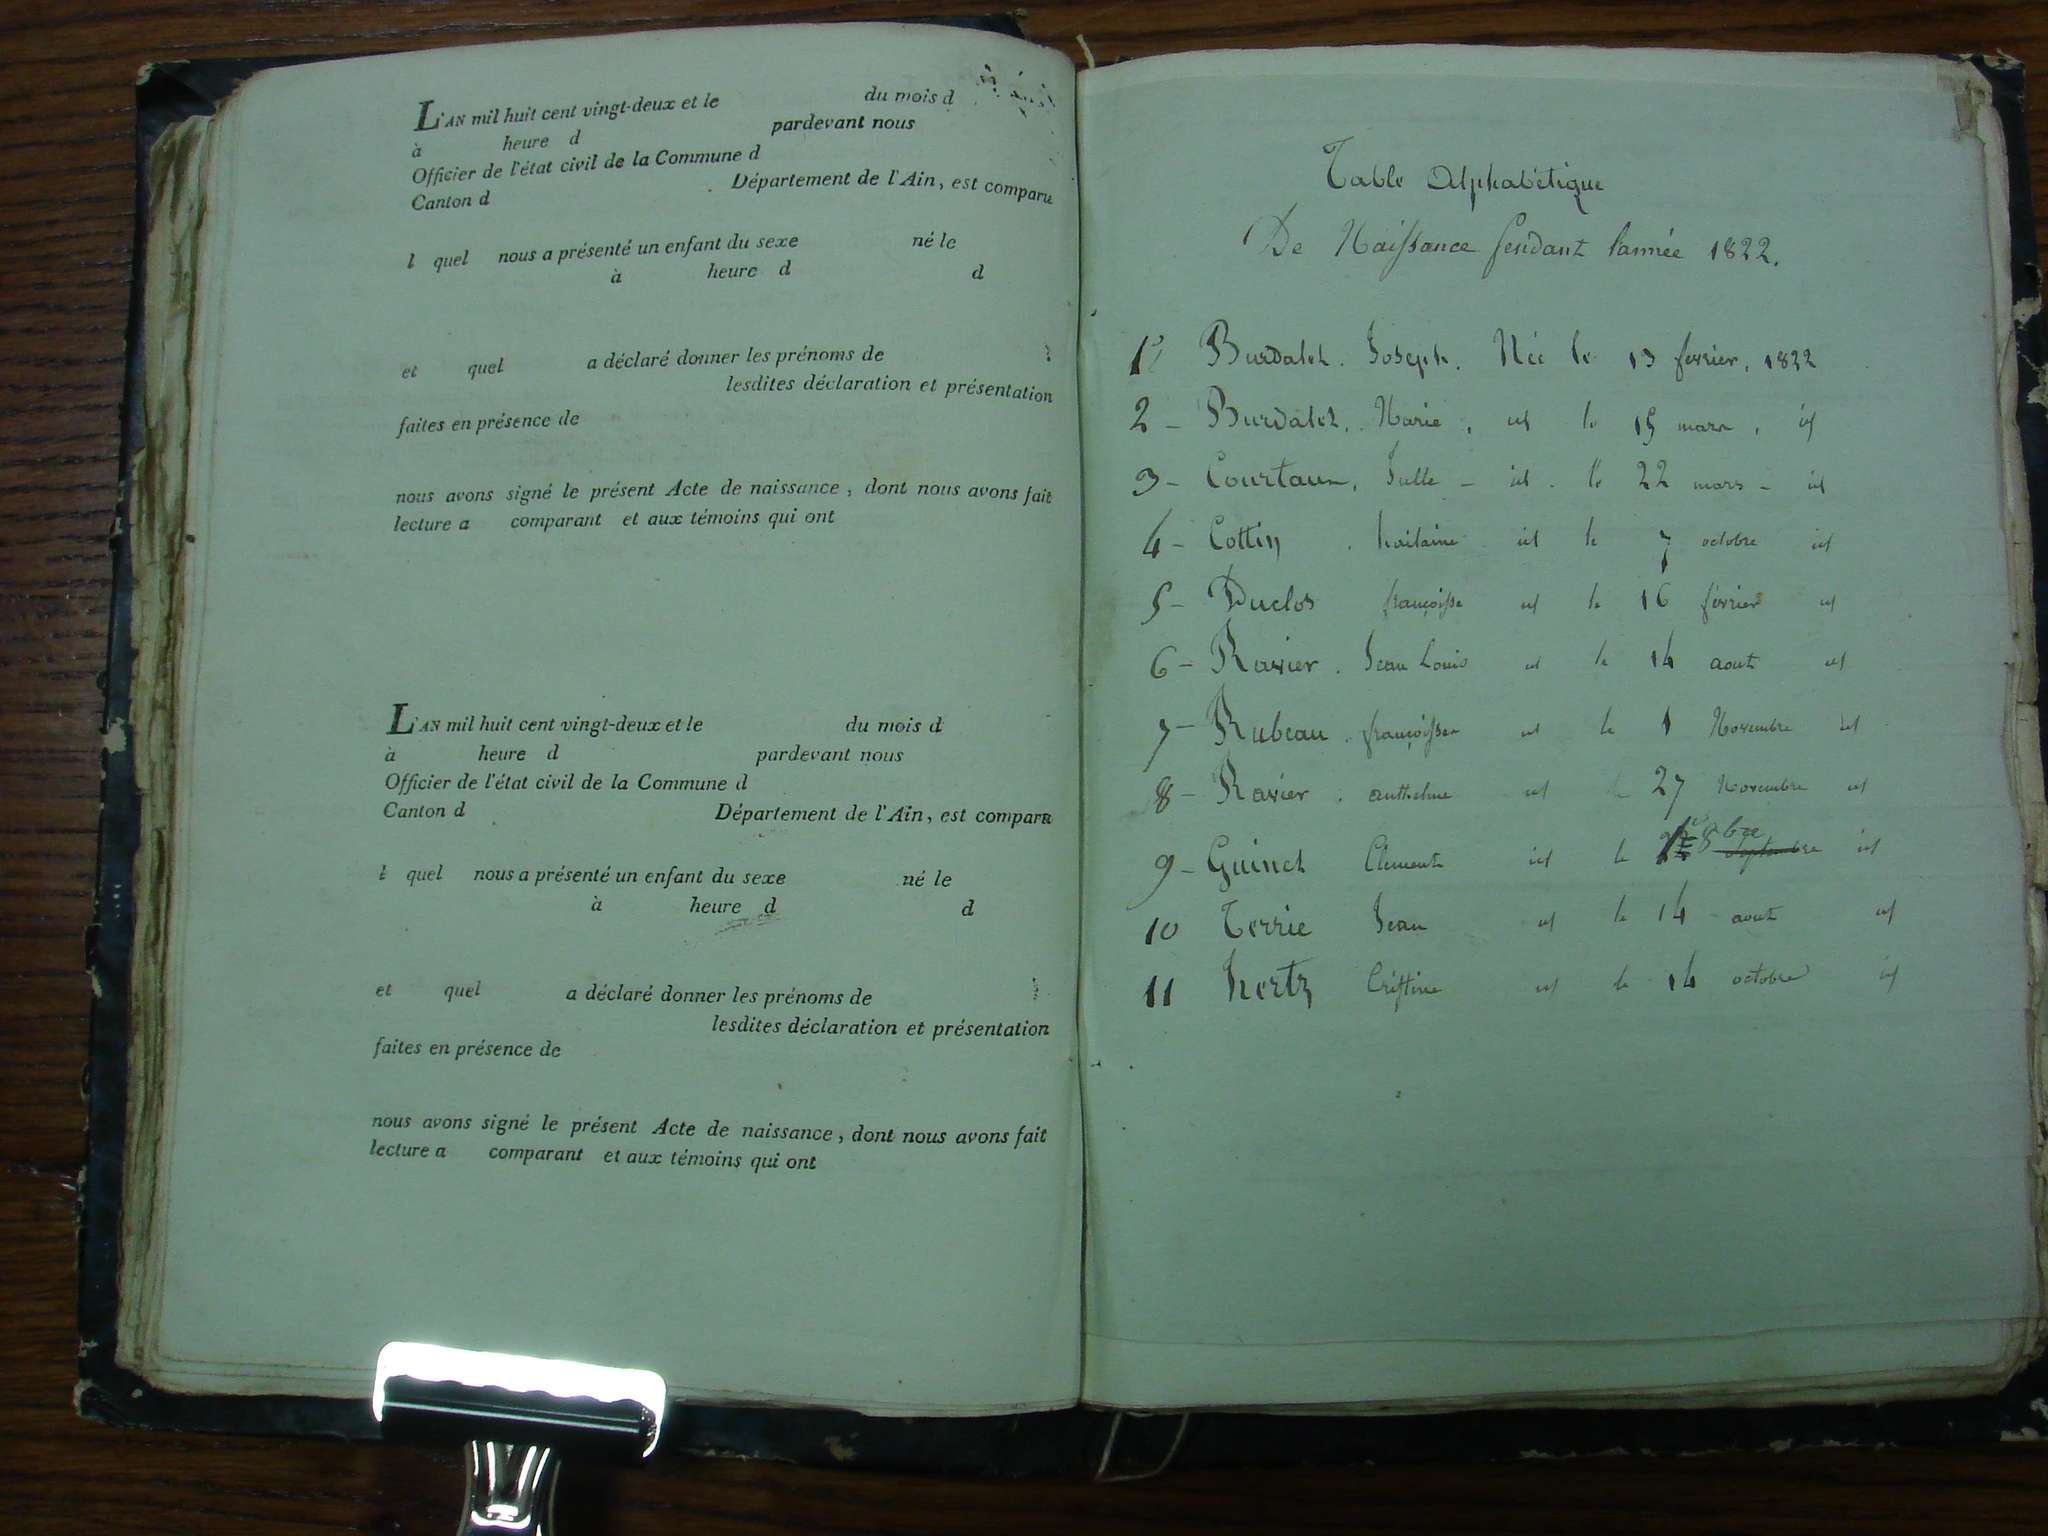 L'AN mil huit cent vingt-deux et le du mois d
à heure d pardevant nous
Officier de l'état civil de la Commune d
Canton d Département de l'Ain, est comparu
l quel nous a présenté un enfant du sexe né le
à heure d d
et quel a déclaré donner les prénoms de ;
lesdites déclaration et présentation
faites en présence de
nous avons signé le présent Acte de naissance, dont nous avons fait
lecture a comparant et aux témoins qui ont
L'AN mil huit cent vingt-deux et le du mois d
à heure d pardevant nous
Officier de l'état civil de la Commune d
Canton d Département de l'Ain, est comparu
l quel nous a présenté un enfant du sexe né le
à heure d d
et quel a déclaré donner les prénoms de ;
lesdites déclaration et présentation
faites en présence de
nous avons signé le présent Acte de naissance, dont nous avons fait
lecture a comparant et aux témoins qui ont
Table Alphabétique
De Naissance pendant l'année 1822.
1° Burdalet. Joseph. Née le 13 fevrier. 1822
2 - Burdalet. Marie, id le 15 mars, id
3 - Courtaux, - id. le 22 mars - id
4 - Cottin. id le 7 octobre id
5 - Duclos françoisse id le 16 février id
6 - Ravier. Jean Louis id le 14 aout id
7 - Rubeau. françoisse id le 1 Novembre id
8 - Ravier. anthelme id le 27 Novembre id
9 - Guinet Clement id le 8bre Septembre id
10 Terrie Jean id le 14 aout id
11 hertz Cristine id le 14 octobre id